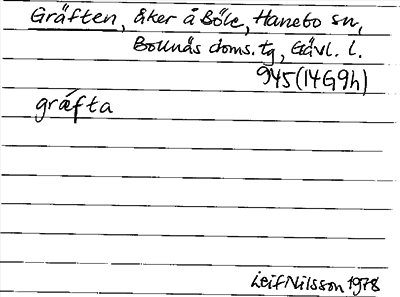 Gräften, åker å Böle, Hanebo sn,
Bollnäs doms. tg, Gävl. l.
945 (14G9h)
grǽfta
Leif Nilsson 1978